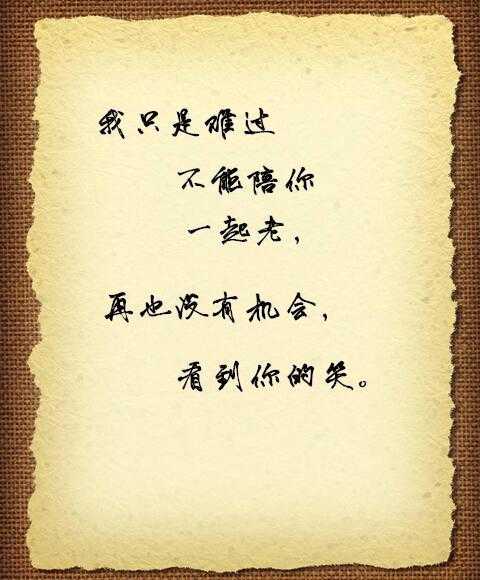 我只是难过
不能陪你
一起老，
再也没有机会，
看到你的笑。